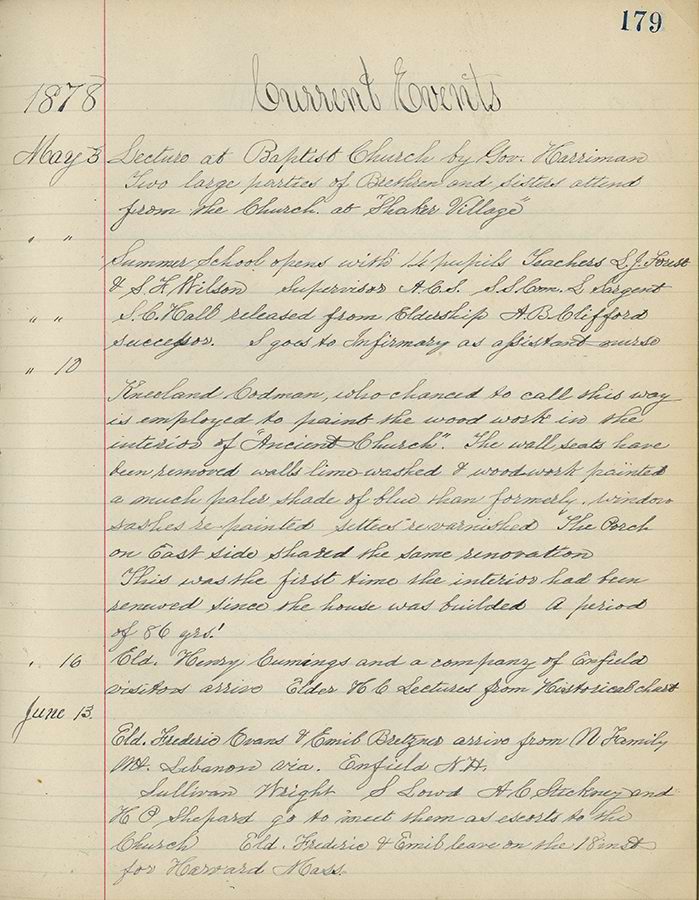 179
1878 Current Events
May 3 Lecture at Baptist Church by Gov. Harriman
Two large parties of Brethren and sisters attend
from the Church. at "Shaker Village"
" "
Summer School opens with 14 pupils Teachers L.J. Forest
& S.F. Wilson Supervisor A.C.S. S.S. Com. L. Sargent
" " S.C. Hall released from Eldership A.B. Clifford
successor. S goes to Infirmary as assistant nurse
" 10
Kneeland Codman, who chanced to call this way
is employed to paint the wood work in the
interior of "Ancient Church". The wall seats have
been removed walls lime-washed & woodwork painted
a much paler shade of blue than formerly. window
sashes re-painted settees revarnished The Porch
on East side shared the same renovation
This was the first time the interior had been
renewed since the house was builded A period
of 86 yrs!
" 16 Eld. Henry Cumings and a company of Enfield
visitors arrive Elder H C Lectures from Historical chart
June 13.
Eld. Frederic Evans & Emil Bretzner arrive from N Family
Mt. Lebanon via. Enfield N.H.
Sullivan Wright S Lowd A C Stickney and
H P Shepard go to meet them as escorts to the
Church Eld. Frederic & Emil leave on the 18 inst
for Harvard Mass.